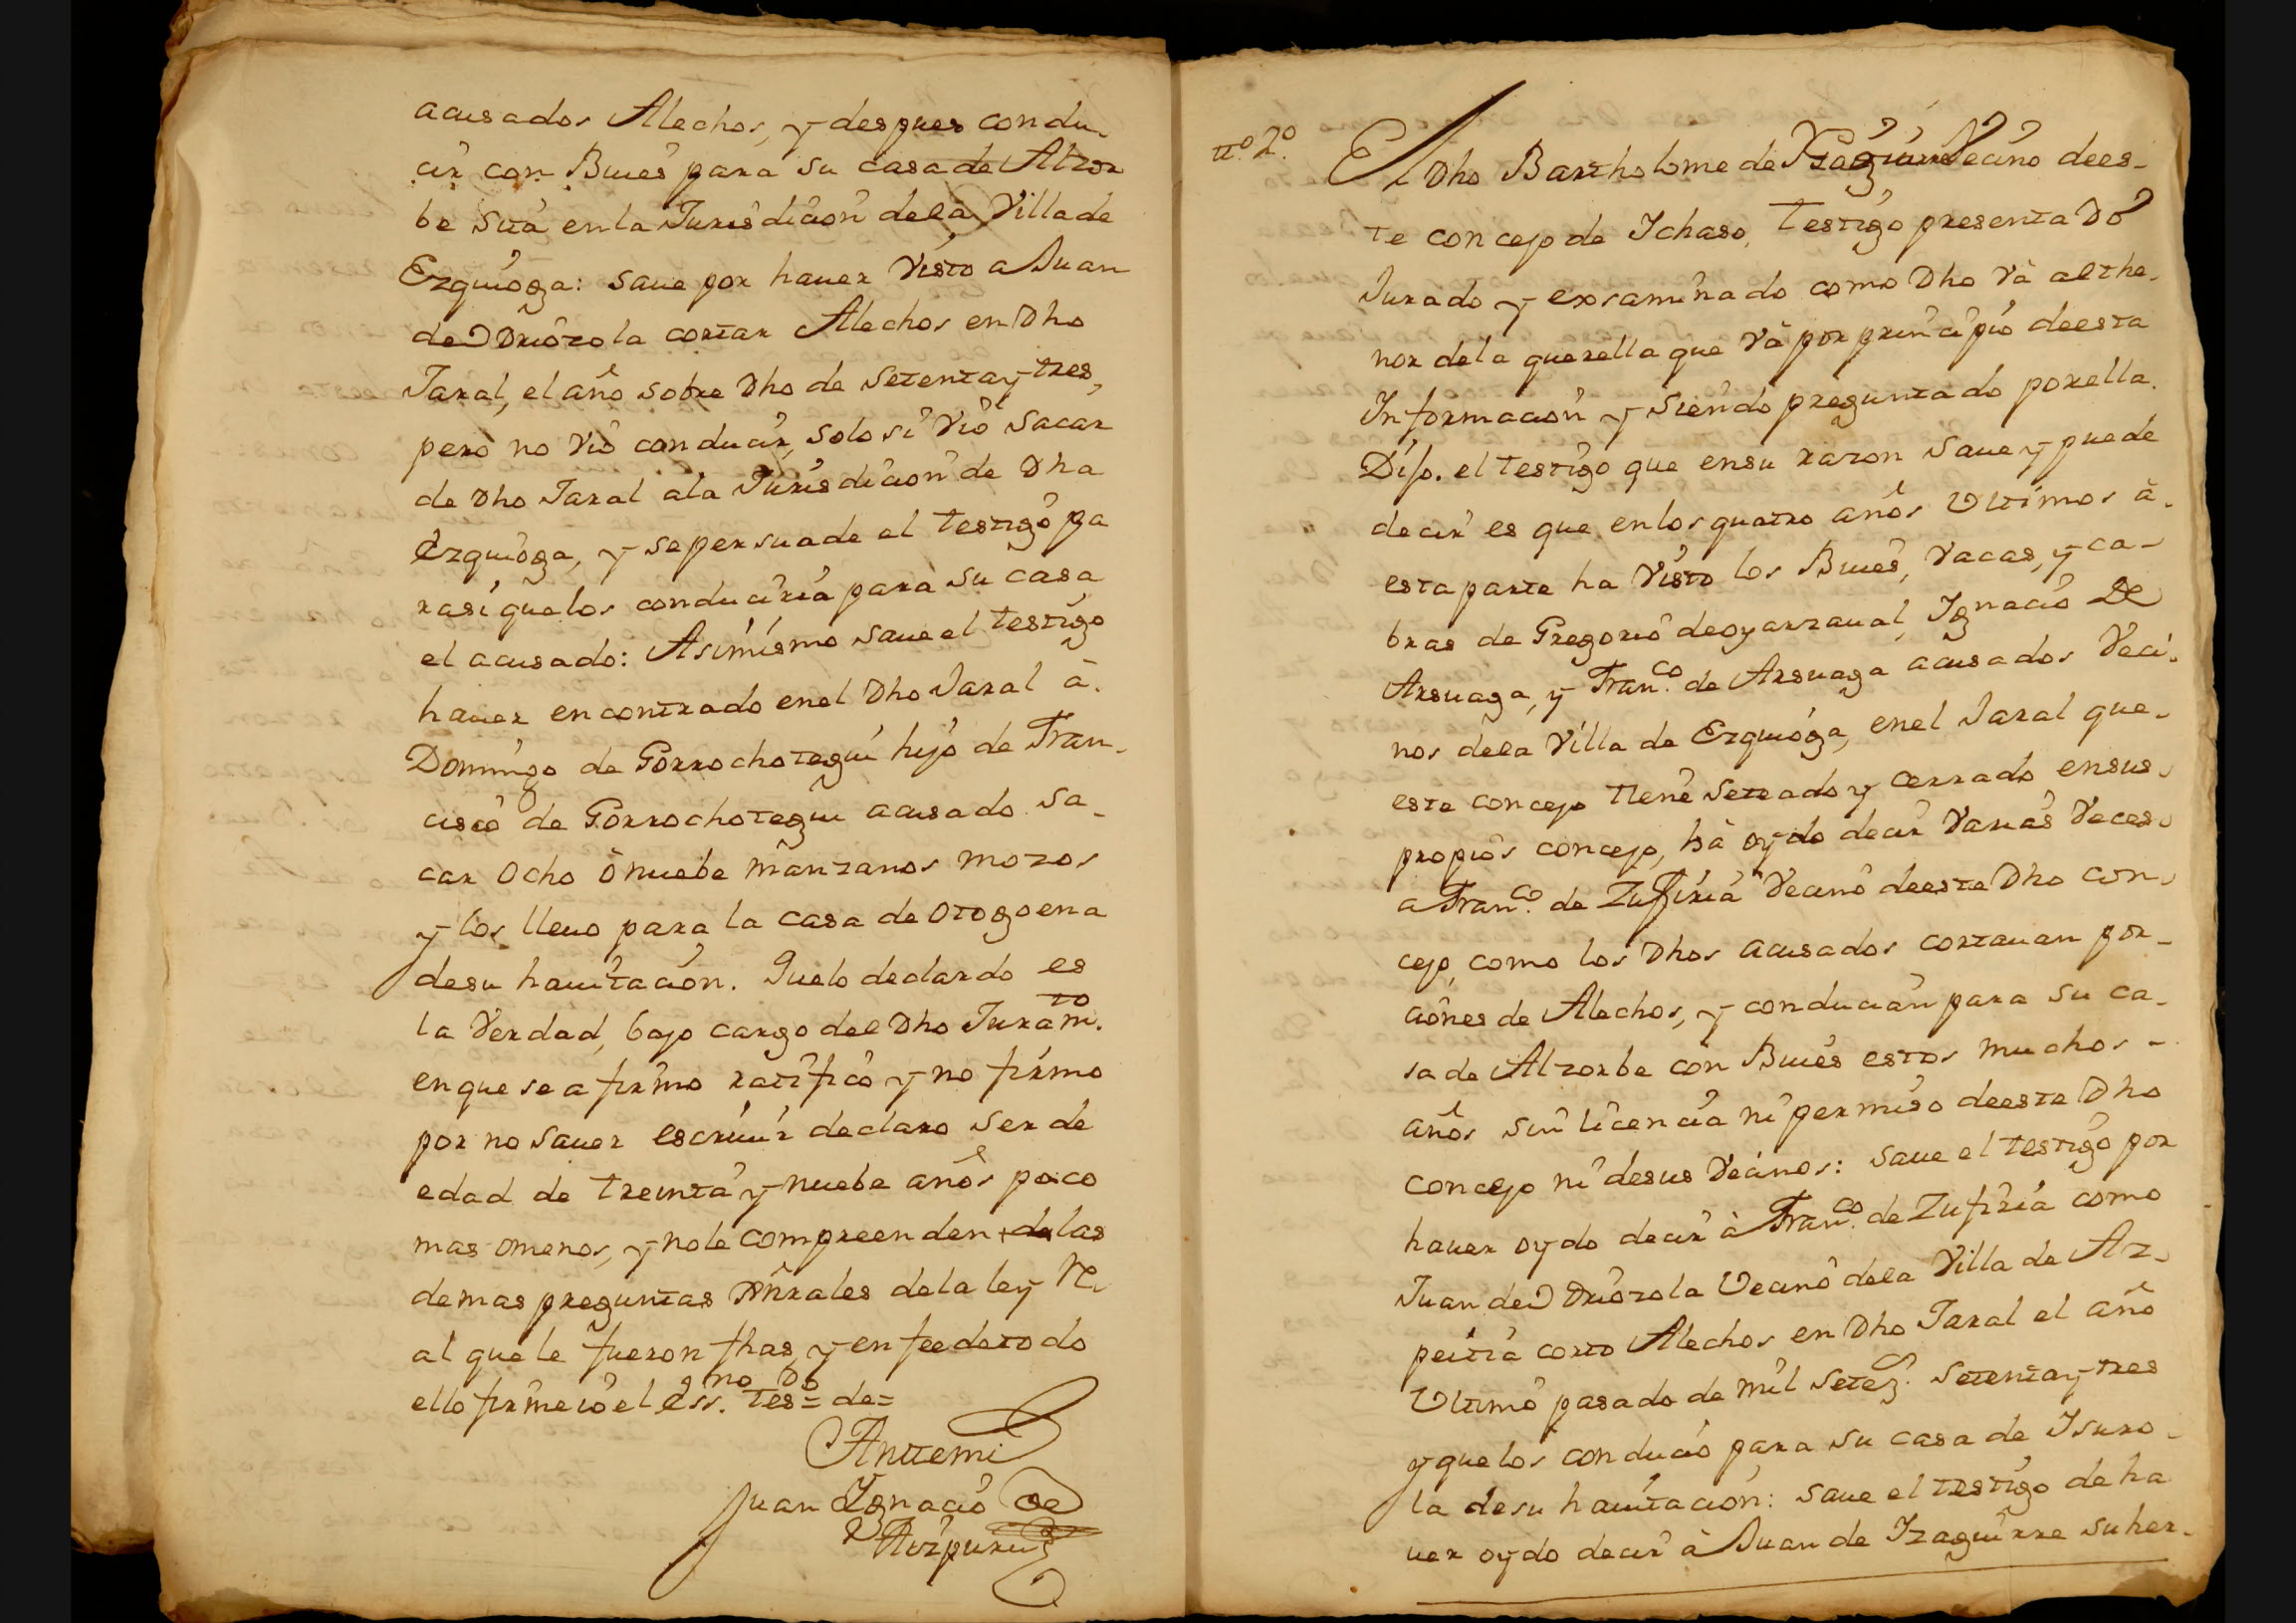 acusados Alechos, y despues condu-
cir con Bues para su casa de Alzor
be sita en la Jurisdicion dela Villa de
Ezquioga: save por haver visto a Juan
de Odriozola cortar Alechos en Dho
Jaral, el año sobre Dho de Setenta y tres,
pero no vió conducir, solo si vió sacar
de Dho Jaral ala Jurisdicion de Dha
Ezquioga, y se persuade el testigo pa
rasi que los conduciria para su casa
el acusado: Asimismo save el testigo
haver encontrado enel Dho Jaral à.
Domingo de Gorrochotegui hijo de Fran-
cisco de Gorrochotegui acusado sa-
car ocho ò nuebe manzanos mozos
y los llevo para la casa de Otogoena
desu havitacion. Quelo declardo es
la Verdad, bajo cargo del Dho Juram.to
enque se afirmo ratificò y no firmo
por no saver escrivir declaro ser de
edad de treinta y nuebe años poco
mas omenos, y nole compreenden + de las
demas preguntas xñrales dela ley Re
al quele fueron fhas, y en fee de todo
ello firme io el Ess.no tes.do = de=
Antemi
Juan Ignacio de
Aizpuru
n.º 2.º
El Dho Bartholome de Yzaguirre Vecino dees-
te concejo de Ichaso, testigo presentado
Jurado y exsaminado como Dho và al the-
nor dela querella que và por principio deesta
Informacion y siendo preguntado porella.
Dijo. el testigo que ensu razon save y puede
decir es que enlos quatro años Ultimos à.
esta parte ha visto los Bues, Vacas, y ca-
bras de Gregorio deoyarzaval, Ignacio De
Arsuaga, y Fran.co de Arsuaga acusados Veci-
nos dela Villa de Ezquioga, enel Jaral que-
este concejo tiene seteado y cerrado ensus-
propios concejo, hà oydo decir varias Veces-
a Fran.co de Zufiria Vecino deeste Dho con-
cejo, como los Dhos acusados cortavan por-
ciones de Alechos, y conducian para su ca-
sa de Alzorbe con Bues estos muchos -
años sin licencia ni permiso deeste Dho
concejo ni desus Vecinos: save el testigo por
haver oydo decir à Fran.co de Zufiria como
Juan de Odriozola Vecino dela Villa de Az-
peitia corto Alechos en Dho Jaral el año
Ultimo pasado de mil setez. setenta y tres
y que los conducio para su casa de Isuro-
la desu havitacion: save el testigo de ha
ver oydo decir à Juan de Izaguirre suher-